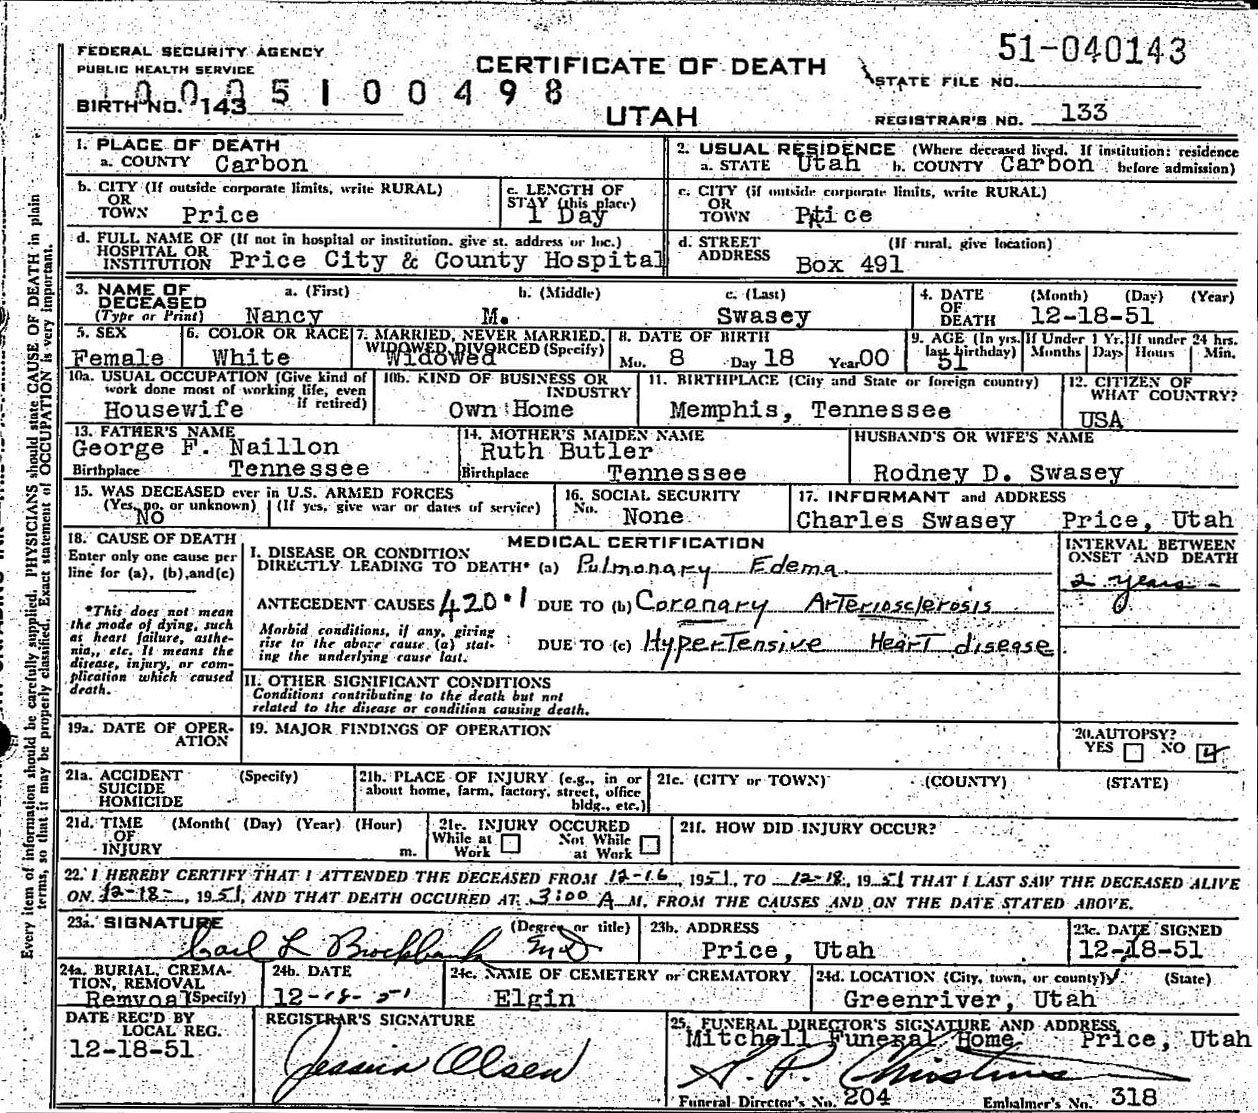 51-040143
FEDERAL SECURITY AGENCY
PUBLIC HEALTH SERVICE
CERTIFICATE OF DEATH
STATE FILE NO.
0005100498
BIRTH NO. 143
UTAH
REGISTRAR'S NO. 133
1. PLACE OF DEATH
a. COUNTY Carbon
2. USUAL RESIDENCE (Where deceased lived. If institution: residence before admission)
a. STATE Utah b. COUNTY Carbon
b. CITY (If outside corporate limits, write RURAL)
OR
TOWN Price
c. LENGTH OF
STAY (this place)
1 Day
c. CITY (if outside corporate limits, write RURAL)
OR
TOWN Price
d. FULL NAME OF (If not in hospital or institution, give st. address or loc.)
HOSPITAL OR
INSTITUTION Price City & County Hospital
d. STREET (If rural, give location)
ADDRESS Box 491
3. NAME OF DECEASED
(Type or Print)
a. (First) b. (Middle) c. (Last)
Nancy M. Swasey
4. DATE OF DEATH (Month) (Day) (Year)
12-18-51
5. SEX
Female
6. COLOR OR RACE
White
7. MARRIED, NEVER MARRIED,
WIDOWED DIVORCED (Specify)
Widowed
8. DATE OF BIRTH
Mo. 8 Day 18 Year 00
9. AGE (In yrs. last birthday)
51
If Under 1 Yr.
Months Days
If under 24 hrs.
Hours Min.
10a. USUAL OCCUPATION (Give kind of
work done most of working life, even
if retired)
Housewife
10b. KIND OF BUSINESS OR
INDUSTRY
Own Home
11. BIRTHPLACE (City and State or foreign country)
Memphis, Tennessee
12. CITIZEN OF
WHAT COUNTRY?
USA
13. FATHER'S NAME
George F. Naillon
Birthplace Tennessee
14. MOTHER'S MAIDEN NAME
Ruth Butler
Birthplace Tennessee
HUSBAND'S OR WIFE'S NAME
Rodney D. Swasey
15. WAS DECEASED ever in U.S. ARMED FORCES
(Yes, no, or unknown) (If yes, give war or dates of service)
No
16. SOCIAL SECURITY
No. None
17. INFORMANT and ADDRESS
Charles Swasey Price, Utah
18. CAUSE OF DEATH
Enter only one cause per
line for (a), (b), and (c)
*This does not mean
the mode of dying, such
as heart failure, asthe-
nia,, etc. It means the
disease, injury, or com-
plication which caused
death.
MEDICAL CERTIFICATION
I. DISEASE OR CONDITION
DIRECTLY LEADING TO DEATH* (a) Pulmonary Edema
INTERVAL BETWEEN
ONSET AND DEATH
2 years
ANTECEDENT CAUSES 420.1 DUE TO (b) Coronary Arteriosclerosis
Morbid conditions, if any, giving
rise to the above cause (a) stat-
ing the underlying cause last.
DUE TO (c) Hypertensive Heart disease
II. OTHER SIGNIFICANT CONDITIONS
Conditions contributing to the death but not
related to the disease or condition causing death.
19a. DATE OF OPER-
ATION
19. MAJOR FINDINGS OF OPERATION
20. AUTOPSY?
YES NO
21a. ACCIDENT (Specify)
SUICIDE
HOMICIDE
21b. PLACE OF INJURY (e.g., in or
about home, farm, factory, street, office
bldg., etc.)
21c. (CITY or TOWN) (COUNTY) (STATE)
21d. TIME (Month( (Day) (Year) (Hour)
OF
INJURY m.
21e. INJURY OCCURED
While at Work Not While at Work
21f. HOW DID INJURY OCCUR?
22. I HEREBY CERTIFY THAT I ATTENDED THE DECEASED FROM 12-16, 1951, TO 12-18, 1951 THAT I LAST SAW THE DECEASED ALIVE
ON 12-18-, 1951, AND THAT DEATH OCCURED AT 3:00 A M, FROM THE CAUSES AND ON THE DATE STATED ABOVE.
23a. SIGNATURE (Degree or title)
Carl L Brockbank MD
23b. ADDRESS
Price, Utah
23c. DATE SIGNED
12-18-51
24a. BURIAL, CREMA-
TION, REMOVAL
Remvoal (Specify)
24b. DATE
12-18-51
24c. NAME OF CEMETERY or CREMATORY
Elgin
24d. LOCATION (City, town, or county) (State)
Greenriver, Utah
DATE REC'D BY
LOCAL REG.
12-18-51
REGISTRAR'S SIGNATURE
Jessica Olsen
25. FUNERAL DIRECTOR'S SIGNATURE AND ADDRESS
Mitchell Funeral Home Price, Utah
Funeral Director's No. 204 Embalmer's No. 318
Every item of information should be carefully supplied. PHYSICIANS should state CAUSE OF DEATH in plain
terms, so that it may be properly classified. Exact statement of OCCUPATION is very important.